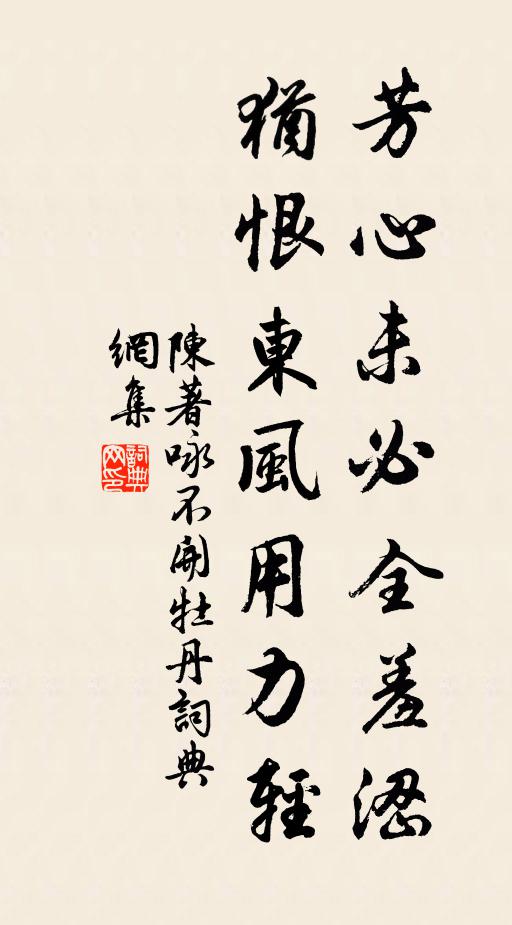 芳心未必全羞澀
猶恨東風用力輕
陳著咏不開牡丹詞典
網集
詞典
网印